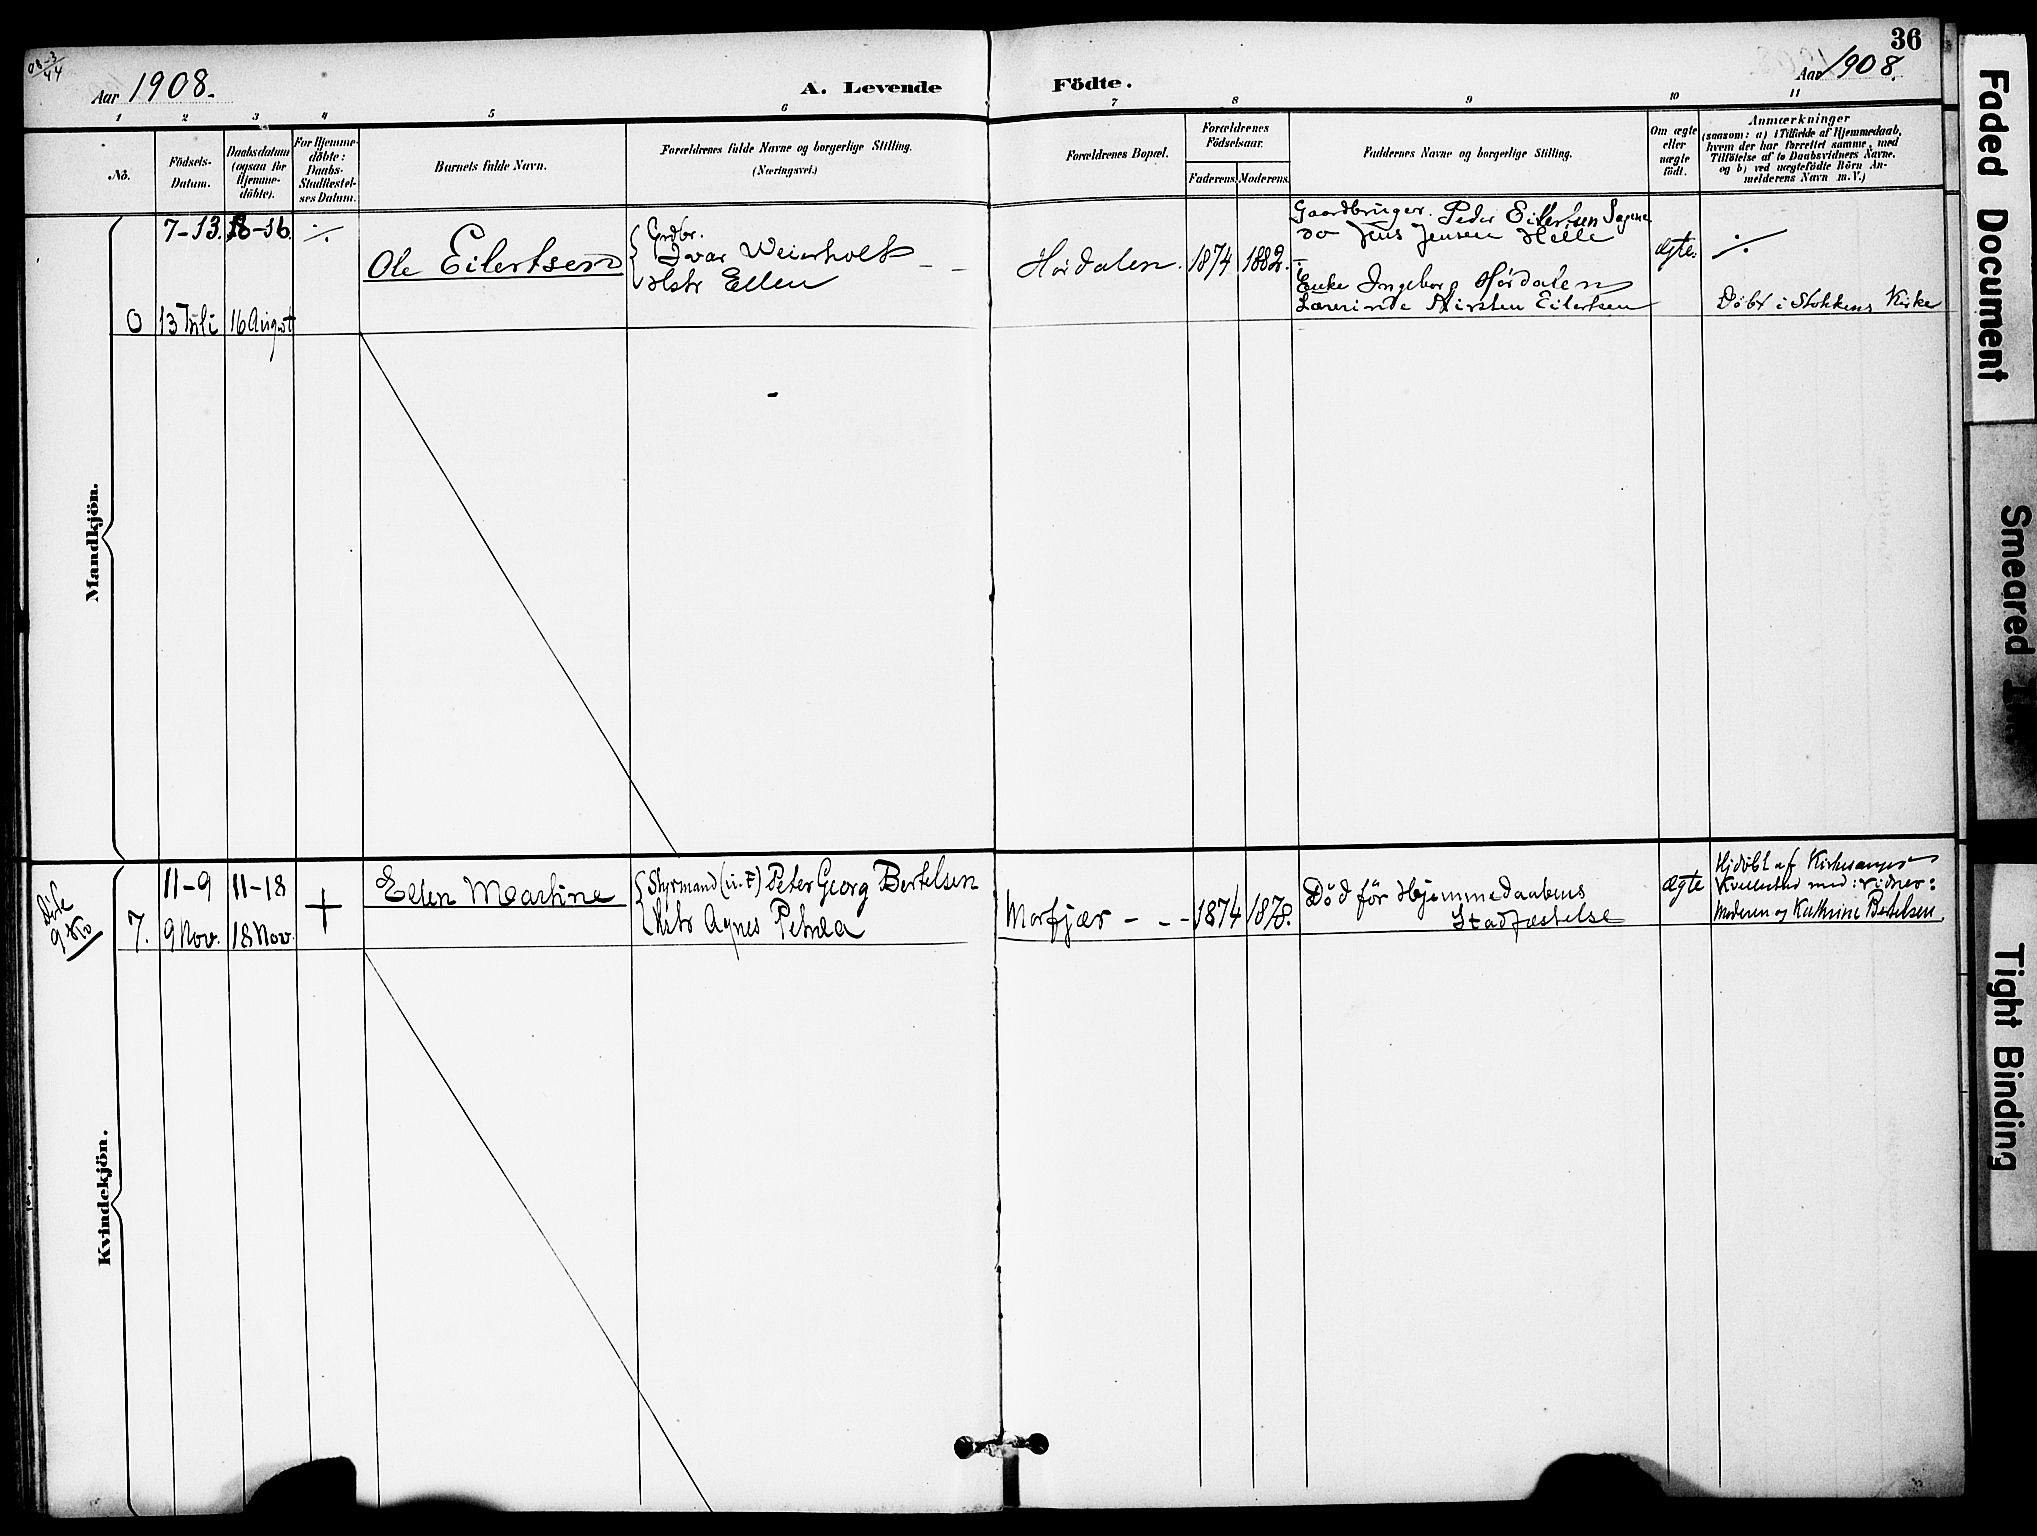 36
08-3/44
Aar 1908.
A. Levende Födte.
Aar 1908.
1 2 3 4 5 6 7 8 9 10 11
No.
Födsels-Datum.
Daabsdatum (ogsaa for Hjemme-döbte).
For Hjemme-döbte: Daabs-Stadfæstel-ses Datum.
Barnets fulde Navn.
Forældrenes fulde Navne og borgerlige Stilling. (Næringsvei.)
Forældrenes Bopæl.
Forældrenes Födselsaar.
Faderens. Moderens.
Faddernes Navne og borgerlige Stilling.
Om ægte eller uægte födt.
Anmærkninger
(saasom: a) i Tilfælde af Hjemmedaab, hvem der har forrettet samme, med Tilföielse af to Daabsvidners Navne, og b) ved uægtefödte Börn An-melderens Navn m. V.)
Mandkjön.
7-13. 8-16. ·/·
Ole Eilertsen
Grdbr.
Ivar Weierholt
Hstr Ellen
Hördalen. 1874 1882.
Gaardbruger. Peder Eilertsen
do Jens Jensen Helle
Enke Ingeborg Hördalen
Lærerinde Kirsten Eilertsen
ægte. ·/·
Döbt i Stokkens Kirke
0 13 Juli 16 August
Kvindekjön.
7.
11-9 11-18
9 Nov. 18 Nov.
+
Ellen Martine
Styrmand (u.F) Peter Georg Bertelsen
Hstr Agnes Petrea
Morfjær - - - 1874 1878.
Död för Hjemmedaabens
Stadfæstelse
ægte
Hjdöbt af Kirkesanger
med: vidner:
Moderen og Kathrine Bertelsen
Faded Document
Smeared Ink
Tight Binding